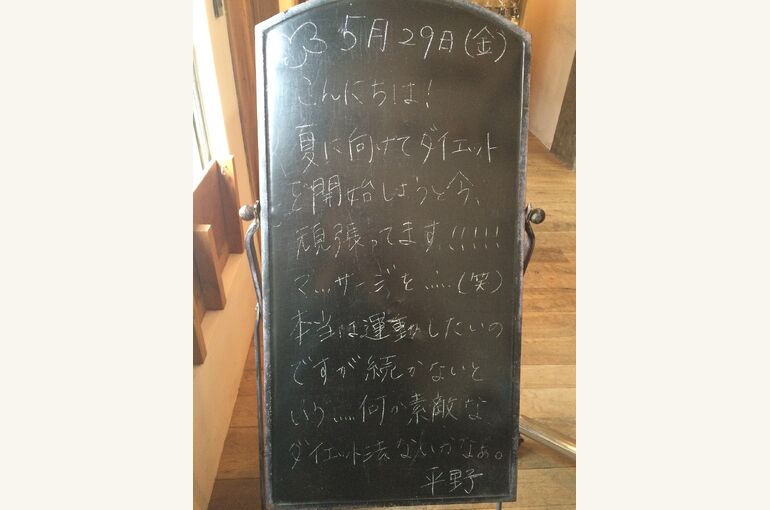 5月29日(金)
こんにちは!
夏に向けてダイエット
を開始しようと今、
頑張ってます!!!!!
マッサージを……(笑)
本当は運動したいの
ですが続かないと
いう……何か素敵な
ダイエット法ないかなぁ。
平野